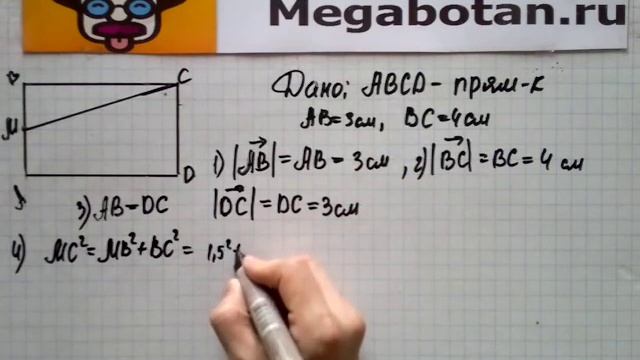 Megabotan.ru
Дано; ABCD - прям-к
AB=3см, BC=4см
B
C
M
A
D
1) |AB|=AB=3см, 2) |BC|=BC=4 см
3) AB=DC |DC|=DC=3см
4) MC²=MB²+BC²= 1,5²+